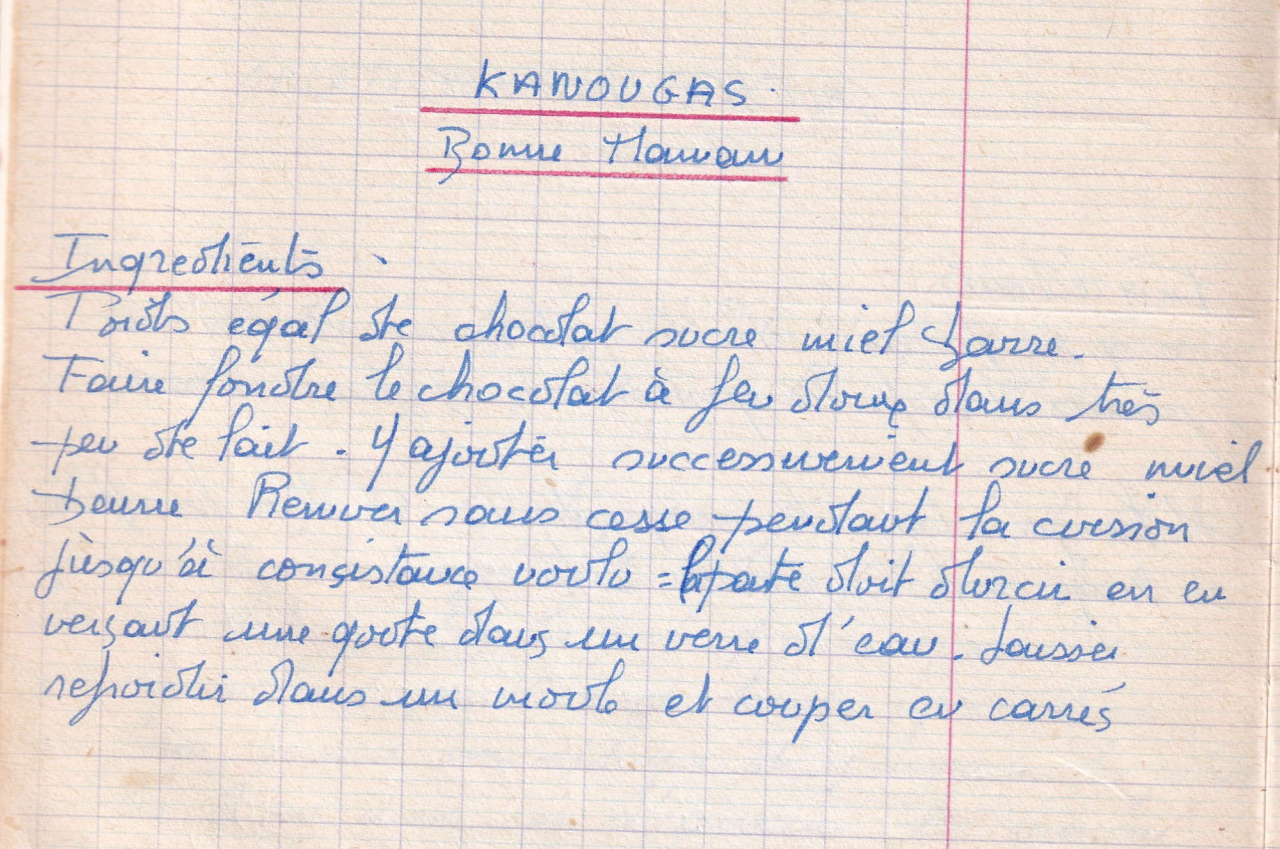 KANOUGAS.
Bonne Maman
Ingrédients
Poids égal de chocolat sucre miel beurre.
Faire fondre le chocolat à feu doux dans très
peu de lait. Y ajouter successivement sucre miel
beurre Remuer sans cesse pendant la cuisson
jusqu'à consistance voulu = la pate doit durcir en en
versant une goute dans un verre d'eau. Laisser
refroidir dans un moule et couper en carrés